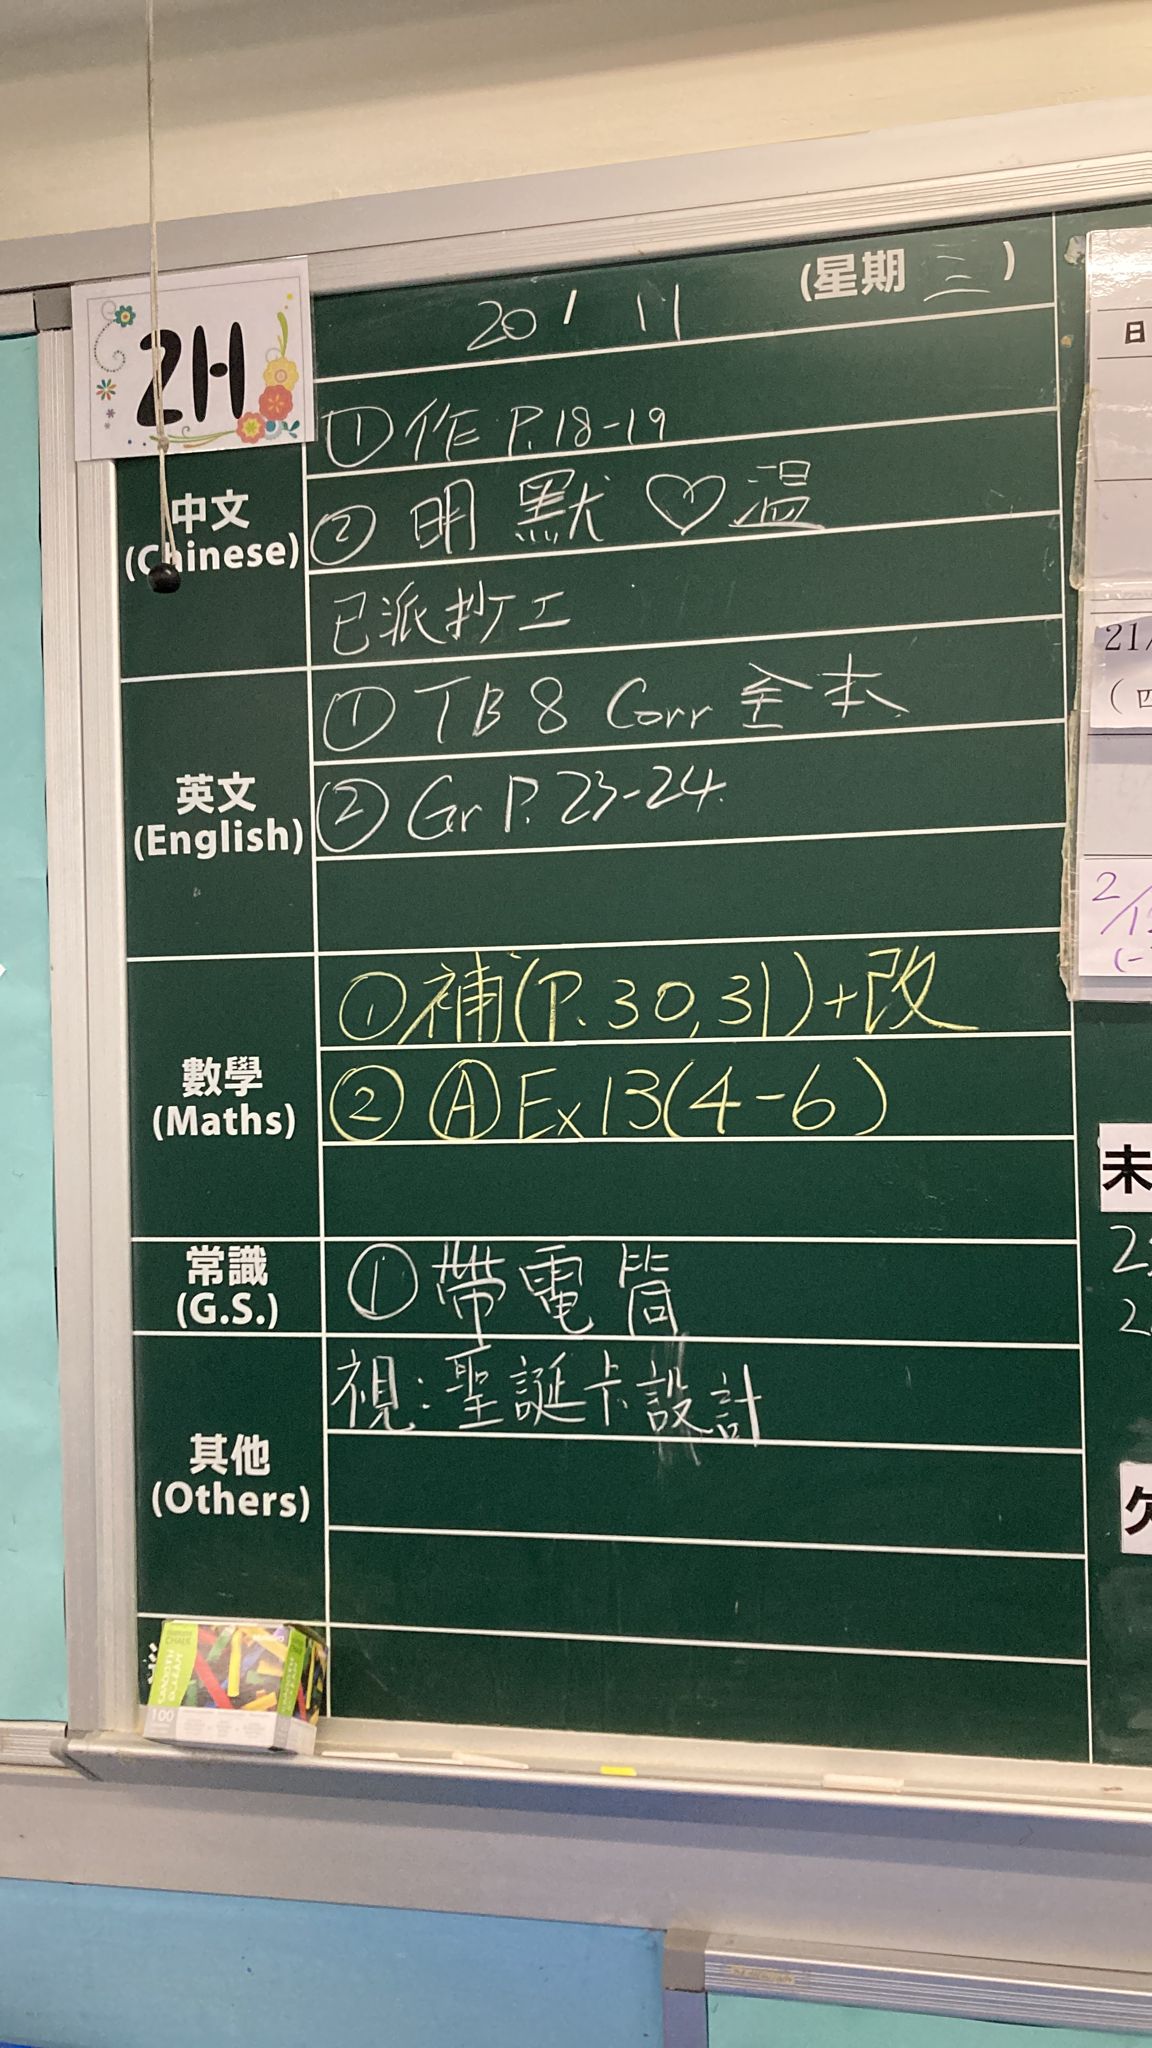 2H
20 / 11 (星期 三 )
中文
(Chinese)
① 作 P.18-19
② 明 默 ♡ 温
已派抄工
英文
(English)
① TB 8 Corr 全本
② Gr P. 23-24.
數學
(Maths)
① 補(P.30,31)+改
② Ⓐ Ex 13(4-6)
常識
(G.S.)
① 帶電筒
其他
(Others)
視：聖誕卡設計
100
日
21/
(四
2/1
(一
未
2
2
欠